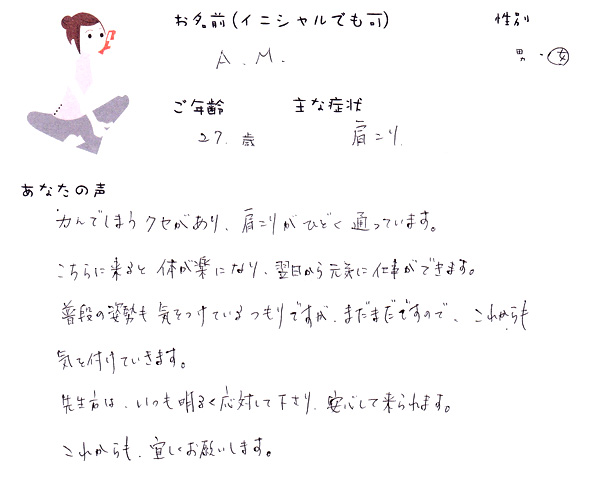 お名前(イニシャルでも可)
性別
A.M.
男・女
ご年齢
主な症状
27.歳
肩こり
あなたの声
力んでしまうクセがあり、肩こりがひどく通っています。
こちらに来ると体が楽になり、翌日から元気に仕事ができます。
普段の姿勢も気をつけているつもりですが、まだまだですので、これからも
気を付けていきます。
先生方は、いつも明るく応対して下さり、安心して来られます。
これからも、宜しくお願いします。